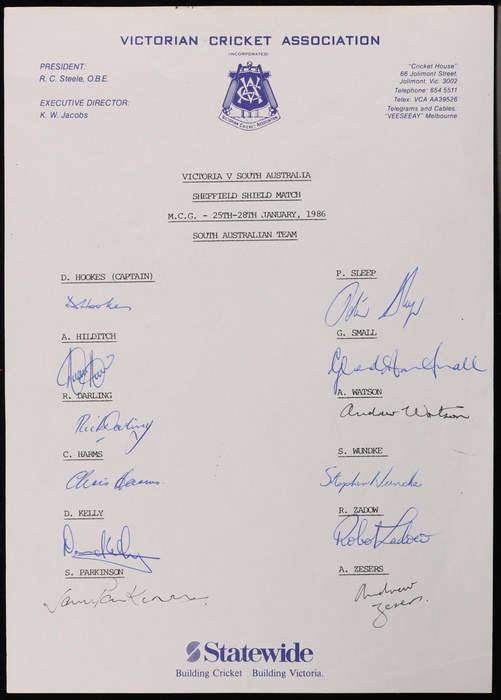 VICTORIAN CRICKET ASSOCIATION
(INCORPORATED)
PRESIDENT:
R. C. Steele, O.B.E.
EXECUTIVE DIRECTOR:
K. W. Jacobs
"Cricket House"
66 Jolimont Street,
Jolimont, Vic. 3002
Telephone: 654 5511
Telex: VCA AA39526
Telegrams and Cables:
"VEESEEAY" Melbourne
VCA
VICTORIAN CRICKET ASSOCIATION
VICTORIA V SOUTH AUSTRALIA
SHEFFIELD SHIELD MATCH
M.C.G. - 25TH-28TH JANUARY, 1986
SOUTH AUSTRALIAN TEAM
D. HOOKES (CAPTAIN)
D Hookes
A. HILDITCH
R. DARLING
Rick Darling
C. HARMS
Chris Harms
D. KELLY
David Kelly
S. PARKINSON
Sam Parkinson
P. SLEEP
Peter Sleep
G. SMALL
Gladstone Small
A. WATSON
Andrew Watson
S. WUNDKE
Stephen Wundke
R. ZADOW
Robert Zadow
A. ZESERS
Andrew
Zesers.
Statewide
Building Cricket Building Victoria.